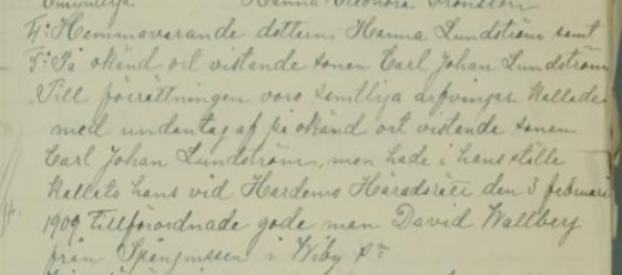 Hanna Eleonora
4: Hemmavarande dottern Hanna Lundström samt
5: På okänd ort vistande sonen Carl Johan Lundström
Till förrättningen voro samtliga arfvingar kallade
med undantag af på okänd ort vistande sonen
Carl Johan Lundström, men hade i hans ställe
kallats hans vid Hardemo Häradsrätt den 3 februari
1909 tillförordnade gode man David Wallberg
från i Wiby Sn